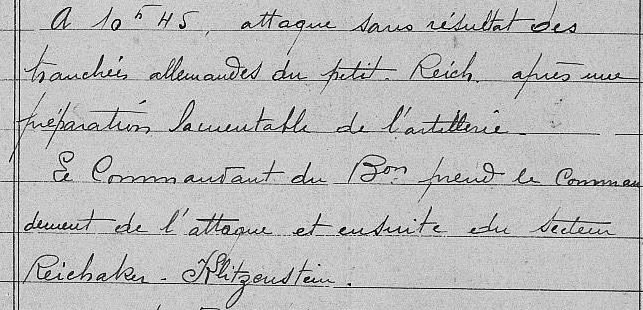 A 10h 45, attaque sans résultat des
tranchées allemandes du petit. Reich. après une
préparation lamentable de l'artillerie.
Le Commandant du Bon prend le comman
dement de l'attaque et ensuite du secteur
Reichaker - Klitzenstein.